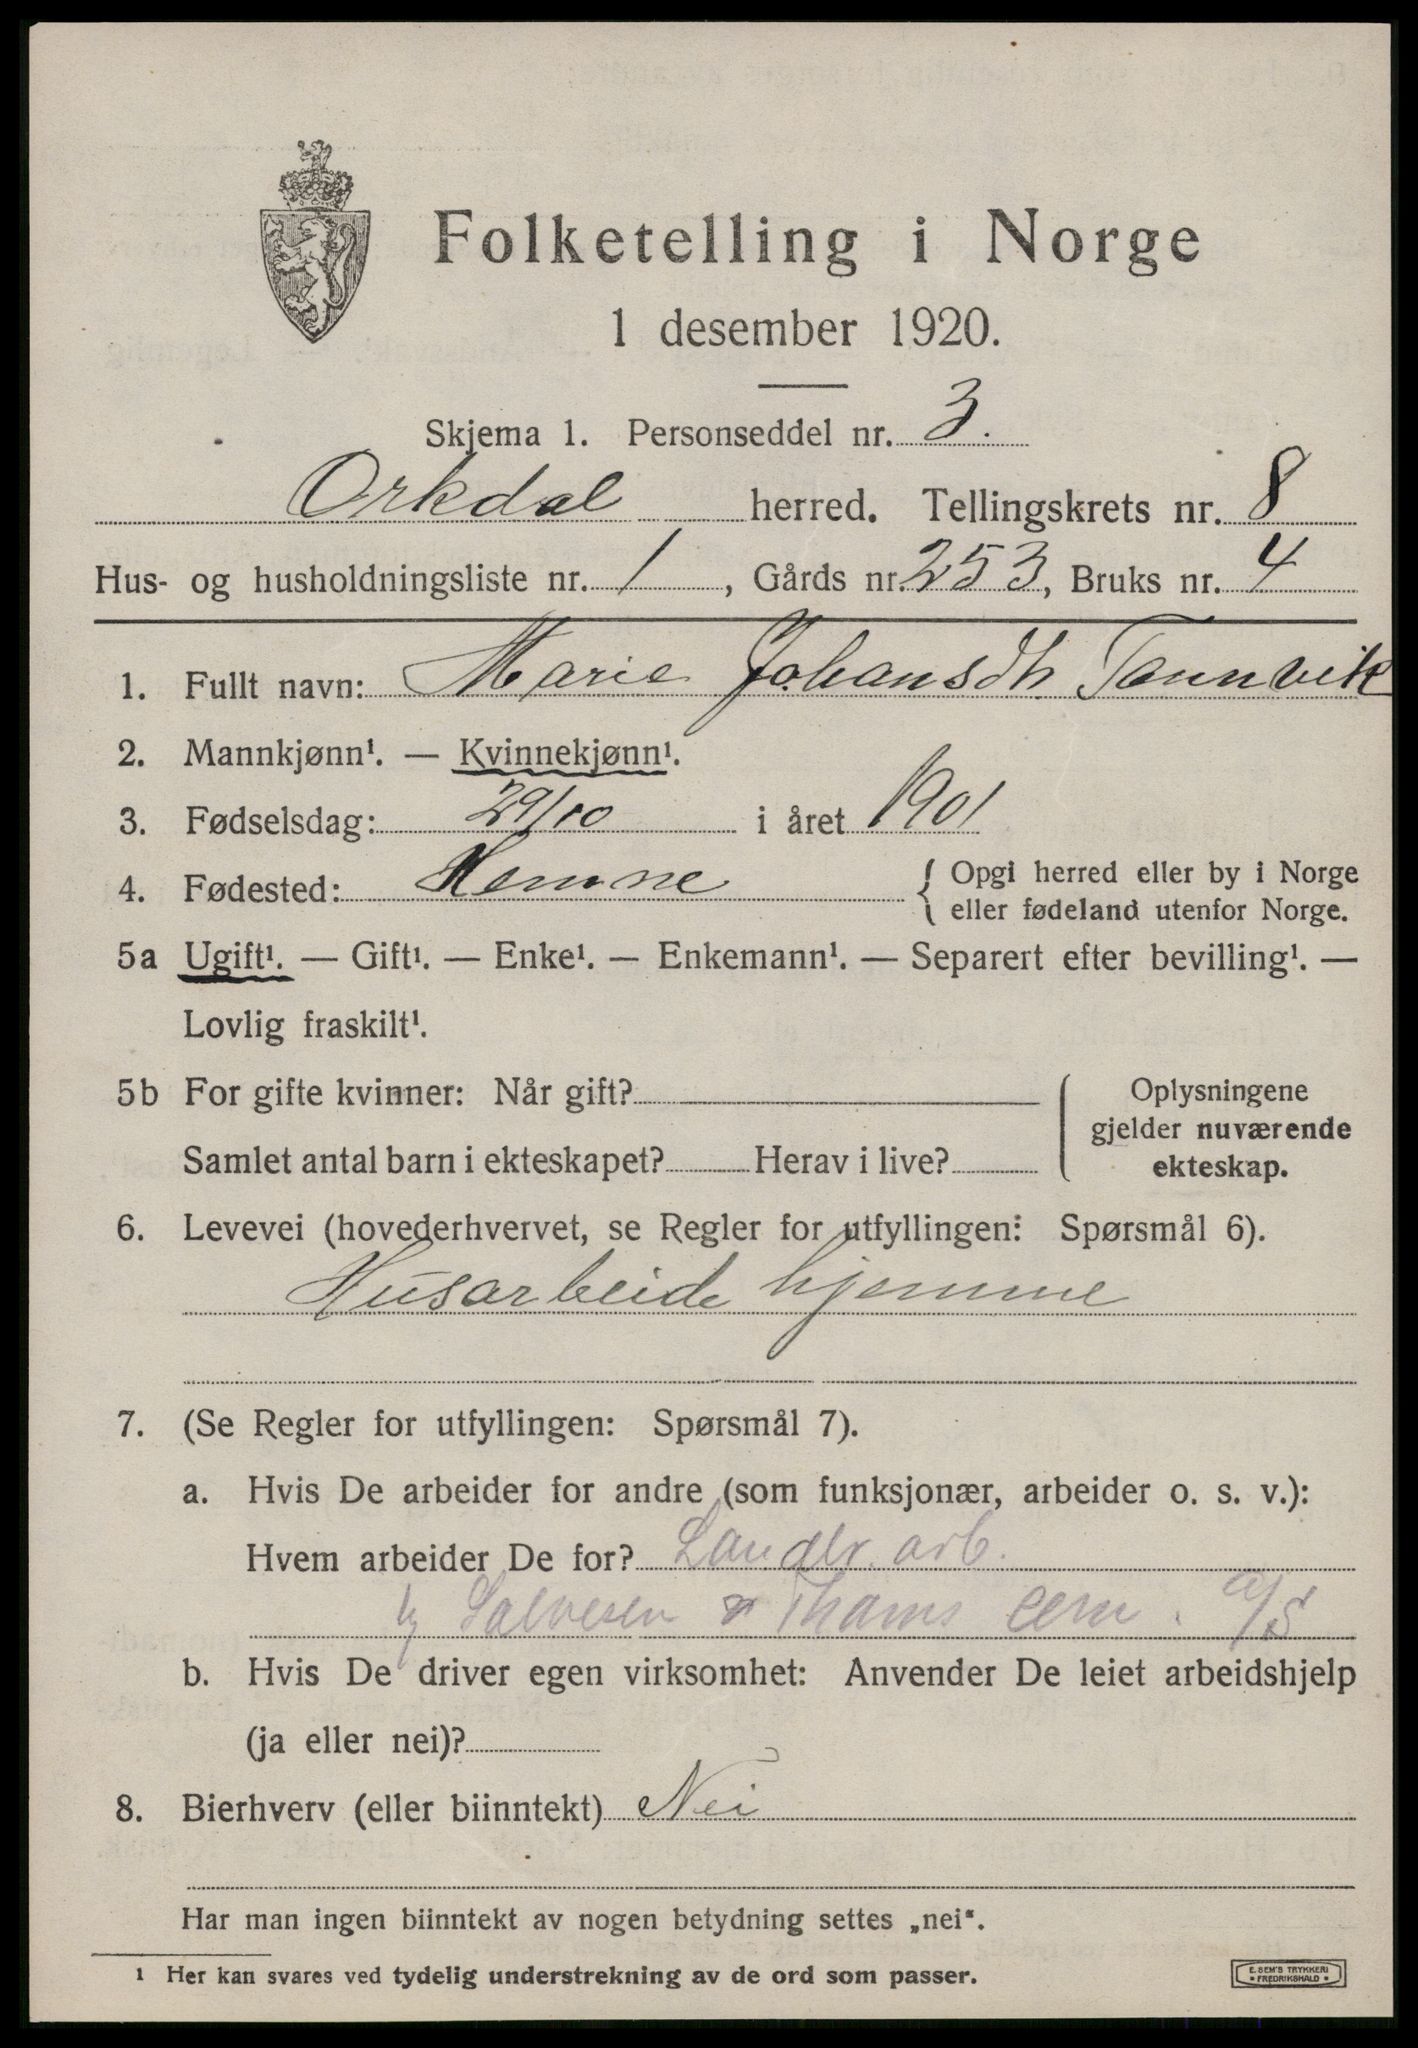 Folketelling i Norge
1 desember 1920.
Skjema 1. Personseddel nr. 3.
Orkdal herred. Tellingskrets nr. 8
Hus- og husholdningsliste nr. 1, Gårds nr. 253, Bruks nr. 4
1. Fullt navn: Marie Johansdh. Tannvik
2. Mannkjønn¹. — Kvinnekjønn¹.
3. Fødselsdag: 29/10 i året 1901
4. Fødested: Hemne { Opgi herred eller by i Norge
eller fødeland utenfor Norge.
5a Ugift¹. — Gift¹. — Enke¹. — Enkemann¹. — Separert efter bevilling¹. —
Lovlig fraskilt¹.
5b For gifte kvinner: Når gift?
Samlet antal barn i ekteskapet? Herav i live?
Oplysningene
gjelder nuværende
ekteskap.
6. Levevei (hovederhvervet, se Regler for utfyllingen: Spørsmål 6).
Husarbeide hjemme
7. (Se Regler for utfyllingen: Spørsmål 7).
a. Hvis De arbeider for andre (som funksjonær, arbeider o. s. v.):
Hvem arbeider De for? arb.
Salvesen & Thams A/S
b. Hvis De driver egen virksomhet: Anvender De leiet arbeidshjelp
(ja eller nei)?
8. Bierhverv (eller biinntekt) Nei
Har man ingen biinntekt av nogen betydning settes „nei“.
1 Her kan svares ved tydelig understrekning av de ord som passer.
E. SEM'S TRYKKERI
• FREDRIKSHALD •